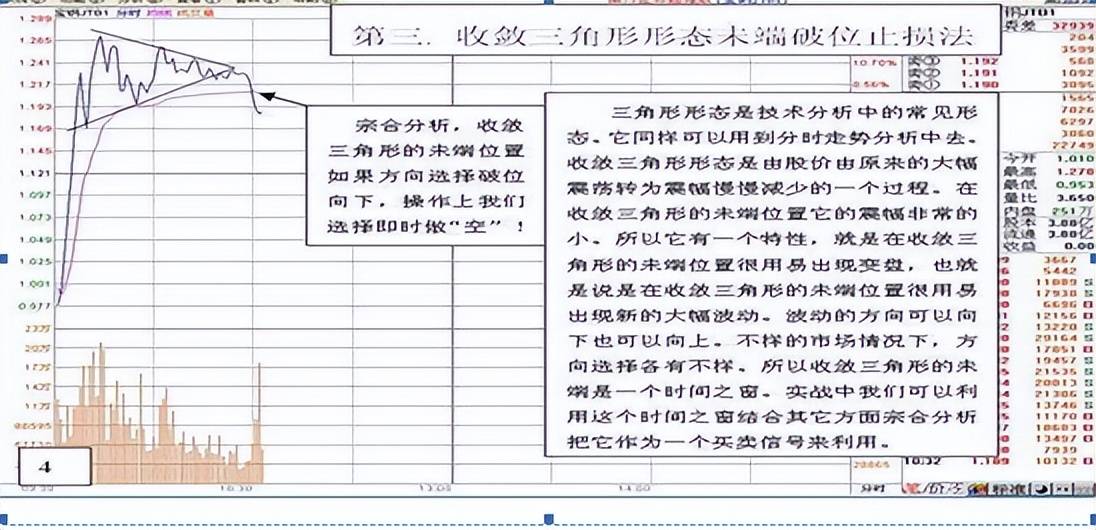 第三. 收敛三角形形态未端破位止损法
宗合分析，收敛
三角形的未端位置
如果方向选择破位
向下，操作上我们
选择即时做“空”！
三角形形态是技术分析中的常见形
态。它同样可以用到分时走势分析中去。
收敛三角形形态是由股价由原来的大幅
震荡转为震幅慢慢减少的一个过程。在
收敛三角形的未端位置它的震幅非常的
小。所以它有一个特性，就是在收敛三
角形的未端位置很用易出现变盘，也就
是说是在收敛三角形的未端位置很用易
出现新的大幅波动。波动的方向可以向
下也可以向上。不样的市场情况下，方
向选择各有不样。所以收敛三角形的未
端是一个时间之窗。实战中我们可以利
用这个时间之窗结合其它方面宗合分析
把它作为一个买卖信号来利用。
4
1.289
1.265
1.241
1.217
1.193
1.169
1.145
1.121
1.097
1.073
1.049
1.025
1.001
0.977
10.70%
1.192
1.191
1.190
32939
204
3599
568
1092
3095
1565
7026
6297
3060
22749
今开 1.010
最高 1.270
最低 0.953
量比 3.650
内盘 251万
股本 3.00亿
流通 3.00亿
收益 0.00
10:30
13:00
14:00
分时
10:32 1.189 10132
标准